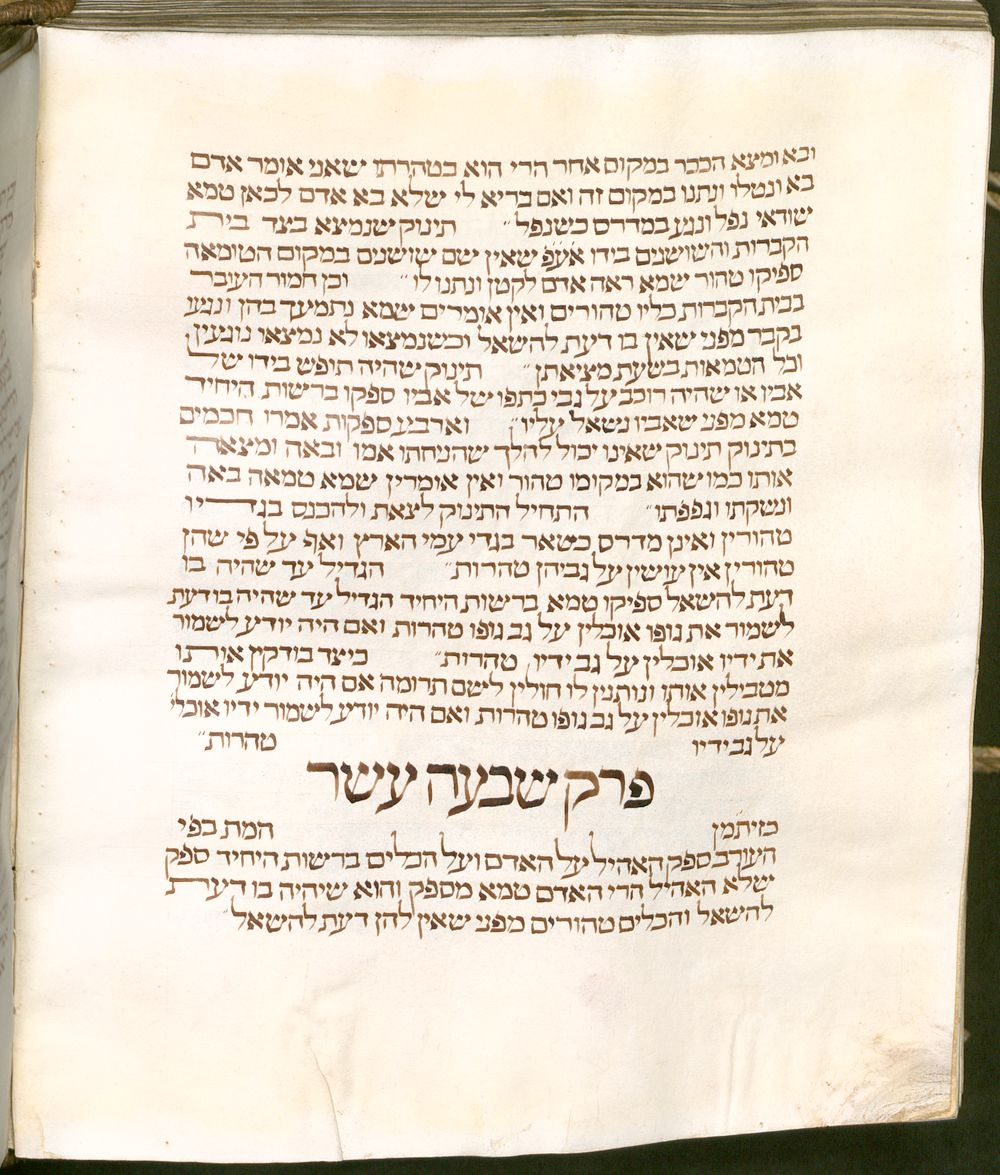 ובא ומצא הככר במקום אחר הרי הוא בטהרתו שאני אומר אדם
בא ונטלו ונתנו במקום זה ואם בריא לי שלא בא אדם לכאן טמא
שודאי נפל ונגע במדרס כשנפל״ תינוק שנמצא בצד בית
הקברות והשושנים בידו אעפ שאין שם שושנים במקום הטומאה
ספיקו טהור שמא ראה אדם לקטן ונתנו לו״ וכן חמור העובר
בבית הקברות כליו טהורים ואין אומרים שמא נתמעך בהן ונגע
בקבר מפני שאין בו דעת להשאל וכשנמצאו לא נמצאו נוגעין
וכל הטמאות בשעת מציאתן״ תינוק שהיה תופש בידו של
אביו או שהיה רוכב על גבי כתפו של אביו ספקו ברשות היחיד
טמא מפני שאביו נשאל עליו״ וארבע ספקות אמרו חכמים
בתינוק תינוק שאינו יכול להלך שהניחתו אמו ובאה ומצאה
אותו כמו שהוא במקומו טהור ואין אומרין שמא טמאה באה
ונשקתו וגפפתו״ התחיל התינוק לצאת ולהכנס בגדיו
טהורין ואינן מדרס כשאר בגדי עמי הארץ ואף על פי שהן
טהורין אין עושין על גביהן טהרות״ הגדיל עד שהיה בו
דעת להשאל ספיקו טמא ברשות היחיד הגדיל עד שהיה בו דעת
לשמור את גופו אוכלין על גב גופו טהרות ואם היה יודע לשמור
את ידיו אוכלין על גב ידיו טהרות״ כיצד בודקין אותו
מטבילין אותו ונותנין לו חולין לשם תרומה אם היה יודע לשמור
את גופו אוכלין על גב גופו טהרות ואם היה יודע לשמור ידיו אוכלי׳
על גב ידיו טהרות״
פרק שבעה עשר
כזית מן המת בפי
העורב ספק האהיל על האדם ועל הכלים ברשות היחיד ספק
שלא האהיל הרי האדם טמא מספק והוא שיהיה בו דעת
להשאל והכלים טהורים מפני שאין להן דעת להשאל״